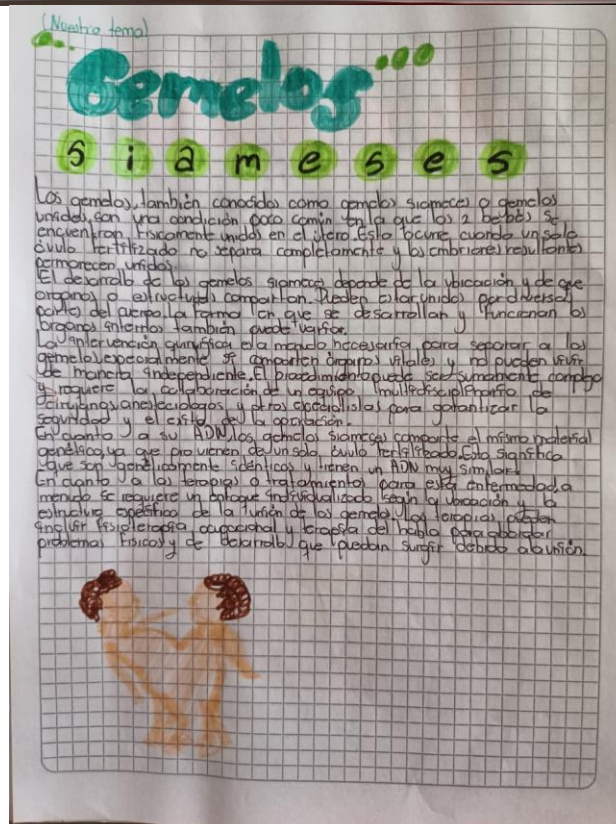 (Nuestro tema)
Gemelos
siameses
Los gemelos, también conocidos como gemelos siameces o gemelos
unidos, son una condición poco común en la que los 2 bebés se
encuentran fisicamente unidos en el útero. Esto ocurre cuando un solo
óvulo fertilizado no separa completamente y los embriones resultantes
permanecen unidos.
El desarrollo de los gemelos siameces depende de la ubicación y de que
organos o estructuras compartan. Pueden estar unidos por diversas
partes del cuerpo, la forma en que se desarrollan y funcionan los
órganos internos también puede variar.
La intervención quirúfica e la menudo necesaria para separar a los
gemelos, especialmente si comparten órganos vitales y no pueden vivir
de maneta independiente. El procedimiento puede ser sumamente complejo
y requiere la colaboración de un equipo multidisciplinario de
cirujanos, anesteciologos y otros especialistas para garantizar la
seguridad y el exito de la operación.
En cuanto a su ADN, los gemelos siameses comparte el mismo material
genético, ya que provienen de un solo óvulo fertilizado. Esto significa
que son genéticamente idénticos y tienen un ADN muy similar.
En cuanto a las terapias o tratamientos para esta enfermedad, a
menudo se requiere un enfoque individualizado según la ubicación y la
estructura específico de la funsión de los gemelos. Las terapias pueden
incluir fisioterapia ocupacional y terapia del habla para abordar
problemas físicos y de desarrollo que puedan surgir debido a la unión.